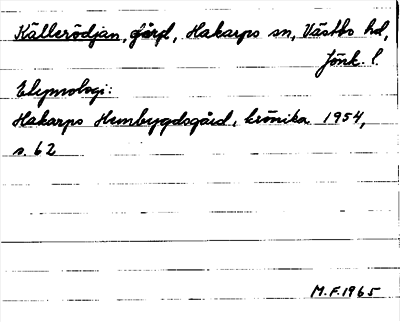 Källerödjan, gård, Hakarps sn, Västbo hd,
Jönk. l.
Etymologi:
Hakarps Hembygdsgård, krönika 1954,
s. 62
M.F. 1965